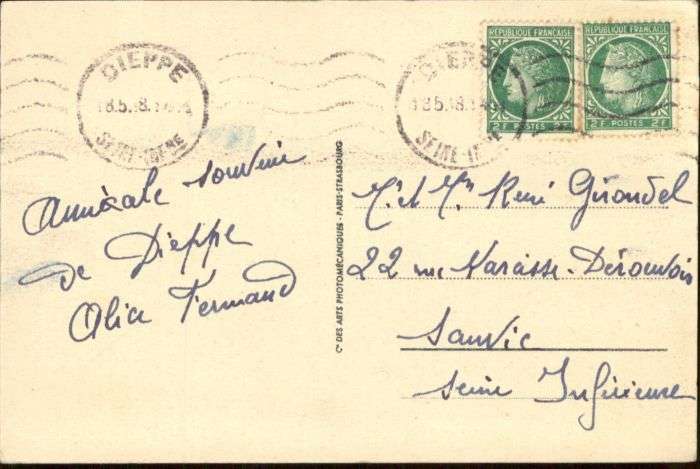 DIEPPE
18.5.48.
SEINE-INFRE
DIEPPE
18.5.48.
SEINE-INFRE
REPUBLIQUE FRANÇAISE
2F POSTES 2F
REPUBLIQUE FRANÇAISE
2F POSTES 2F
Amicale souvenir
de Dieppe
Alice Fernand
Cie DES ARTS PHOTOMÉCANIQUES - PARIS-STRASBOURG
Mr et Me René Girondel
22 rue Narcisse-Dérouvois
Sanvic
Seine Inférieure